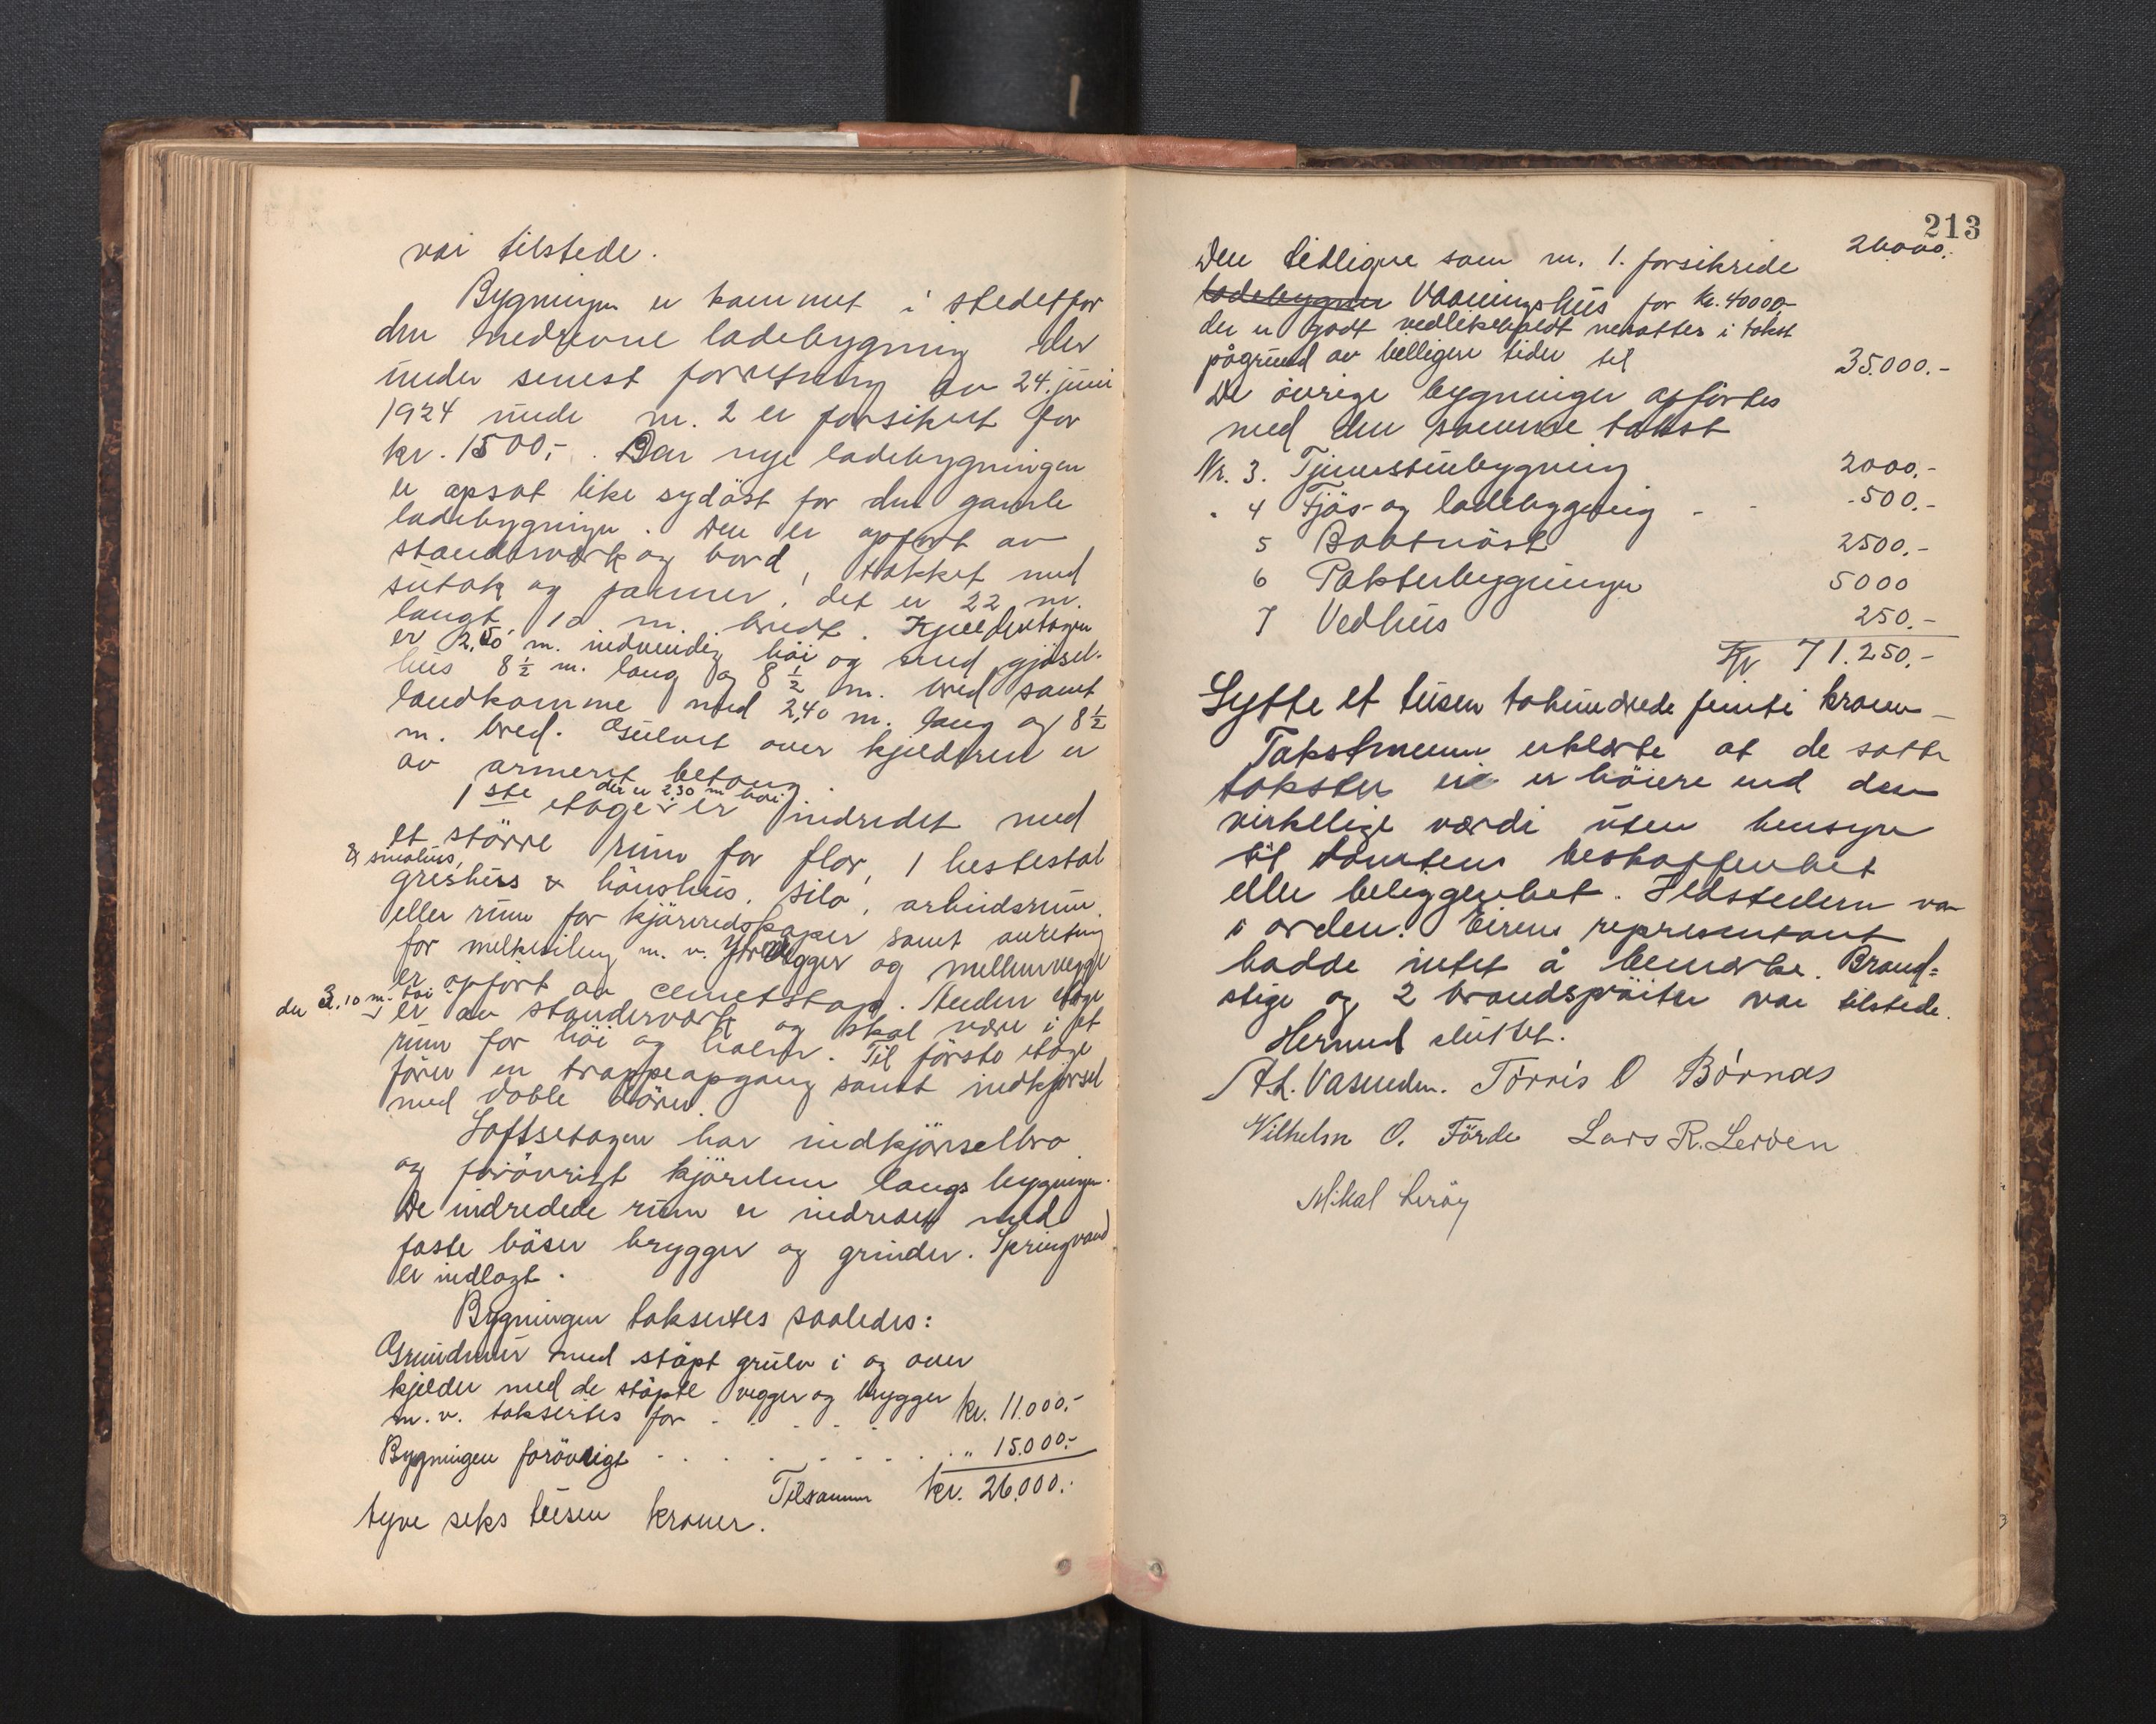 var tilstede.
Bygningen er kommet i stedetfor
den nedrevne ladebygning der
under senest forretning av 24. juni
1924 under nr. 2 er forsikret for
kr. 1500,-. Den nye ladebygningen
er opsat like sydöst for den gamle
ladebygningen. Den er opfört av
standerverk og bord, takket med
sutak og panner, det er 22 m.
langt 10 m. bredt. Kjelderetagen
er 2,50 m. indvendig höi og med gjösel-
hus 8½ m. lang og 8½ m. bred samt
landkamme med 2,40 m. lang og 8½
m. bred. Gulvet over kjelderen er
av armeret betong.
der er 2,30 m höi
1ste etage er indredet med
et större rum for flor, 1 hestestal
& smalhus,
grishus & hönshus, silo, arbeidsrum
eller rum for kjöreredskaper samt anretning
for melkesiling m. v. Ytrevegger og mellemvegge
er opfört av cementstöp. Anden etage
der 3.10 m. höi
er av standerverk og skal være i et
rum for höi og halm. Til förste etage
förer en trappeopgang samt indkjörsel
med doble dörer.
Loftsetagen har indkjörselbro
og forövrigt kjörebru langs bygningen.
De indredede rum er indredet med
faste båser brygger og grinder. Springvand
er indlagt.
Bygningen taksertes saaledes:
Grundmur med stöpt grulv i og over
kjelder med de stöpte vegger og brygger
m. v. taksertes for - - - - - kr. 11.000.-
Bygningen forövrigt - - - - - - - „ 15.000.-
Tilsammen kr. 26.000.-
tyve seks tusen kroner.
213
26.000.-
Den tidligere som nr. 1. forsikrede
ladebygning Vaaningshus for kr. 40000,-
der er godt vedlikeholdt nedsattes i takst
pågrund av billigere tider til 35.000.-
De övrige bygninger opförtes
med den samme takst
Nr. 3. Tjenerstuebygning 2000.-
" 4 Fjös- og ladebygning - - 500.-
5 Baatnöst 2500.-
6 Pakterbygningen 5000
7 Vedhus 250.-
Kr 71.250.-
Sytte et tusen tohundrede femti kroner
Takstmenn erklærte at de satte
takster ei er höiere end den
virkelige værdi uten hensyn
til tomtens beskaffenhet
eller beliggenhet. Ildstedern var
i orden. Eirens representant
hadde intet å bemærke. Brand=
stige og 2 brandspröiter var tilstede.
Hermed sluttet.
A.L. Vasenden. Torris O Börnæs
Vilhelm O. Förde Lars R. Leröen
Mikal Leröy